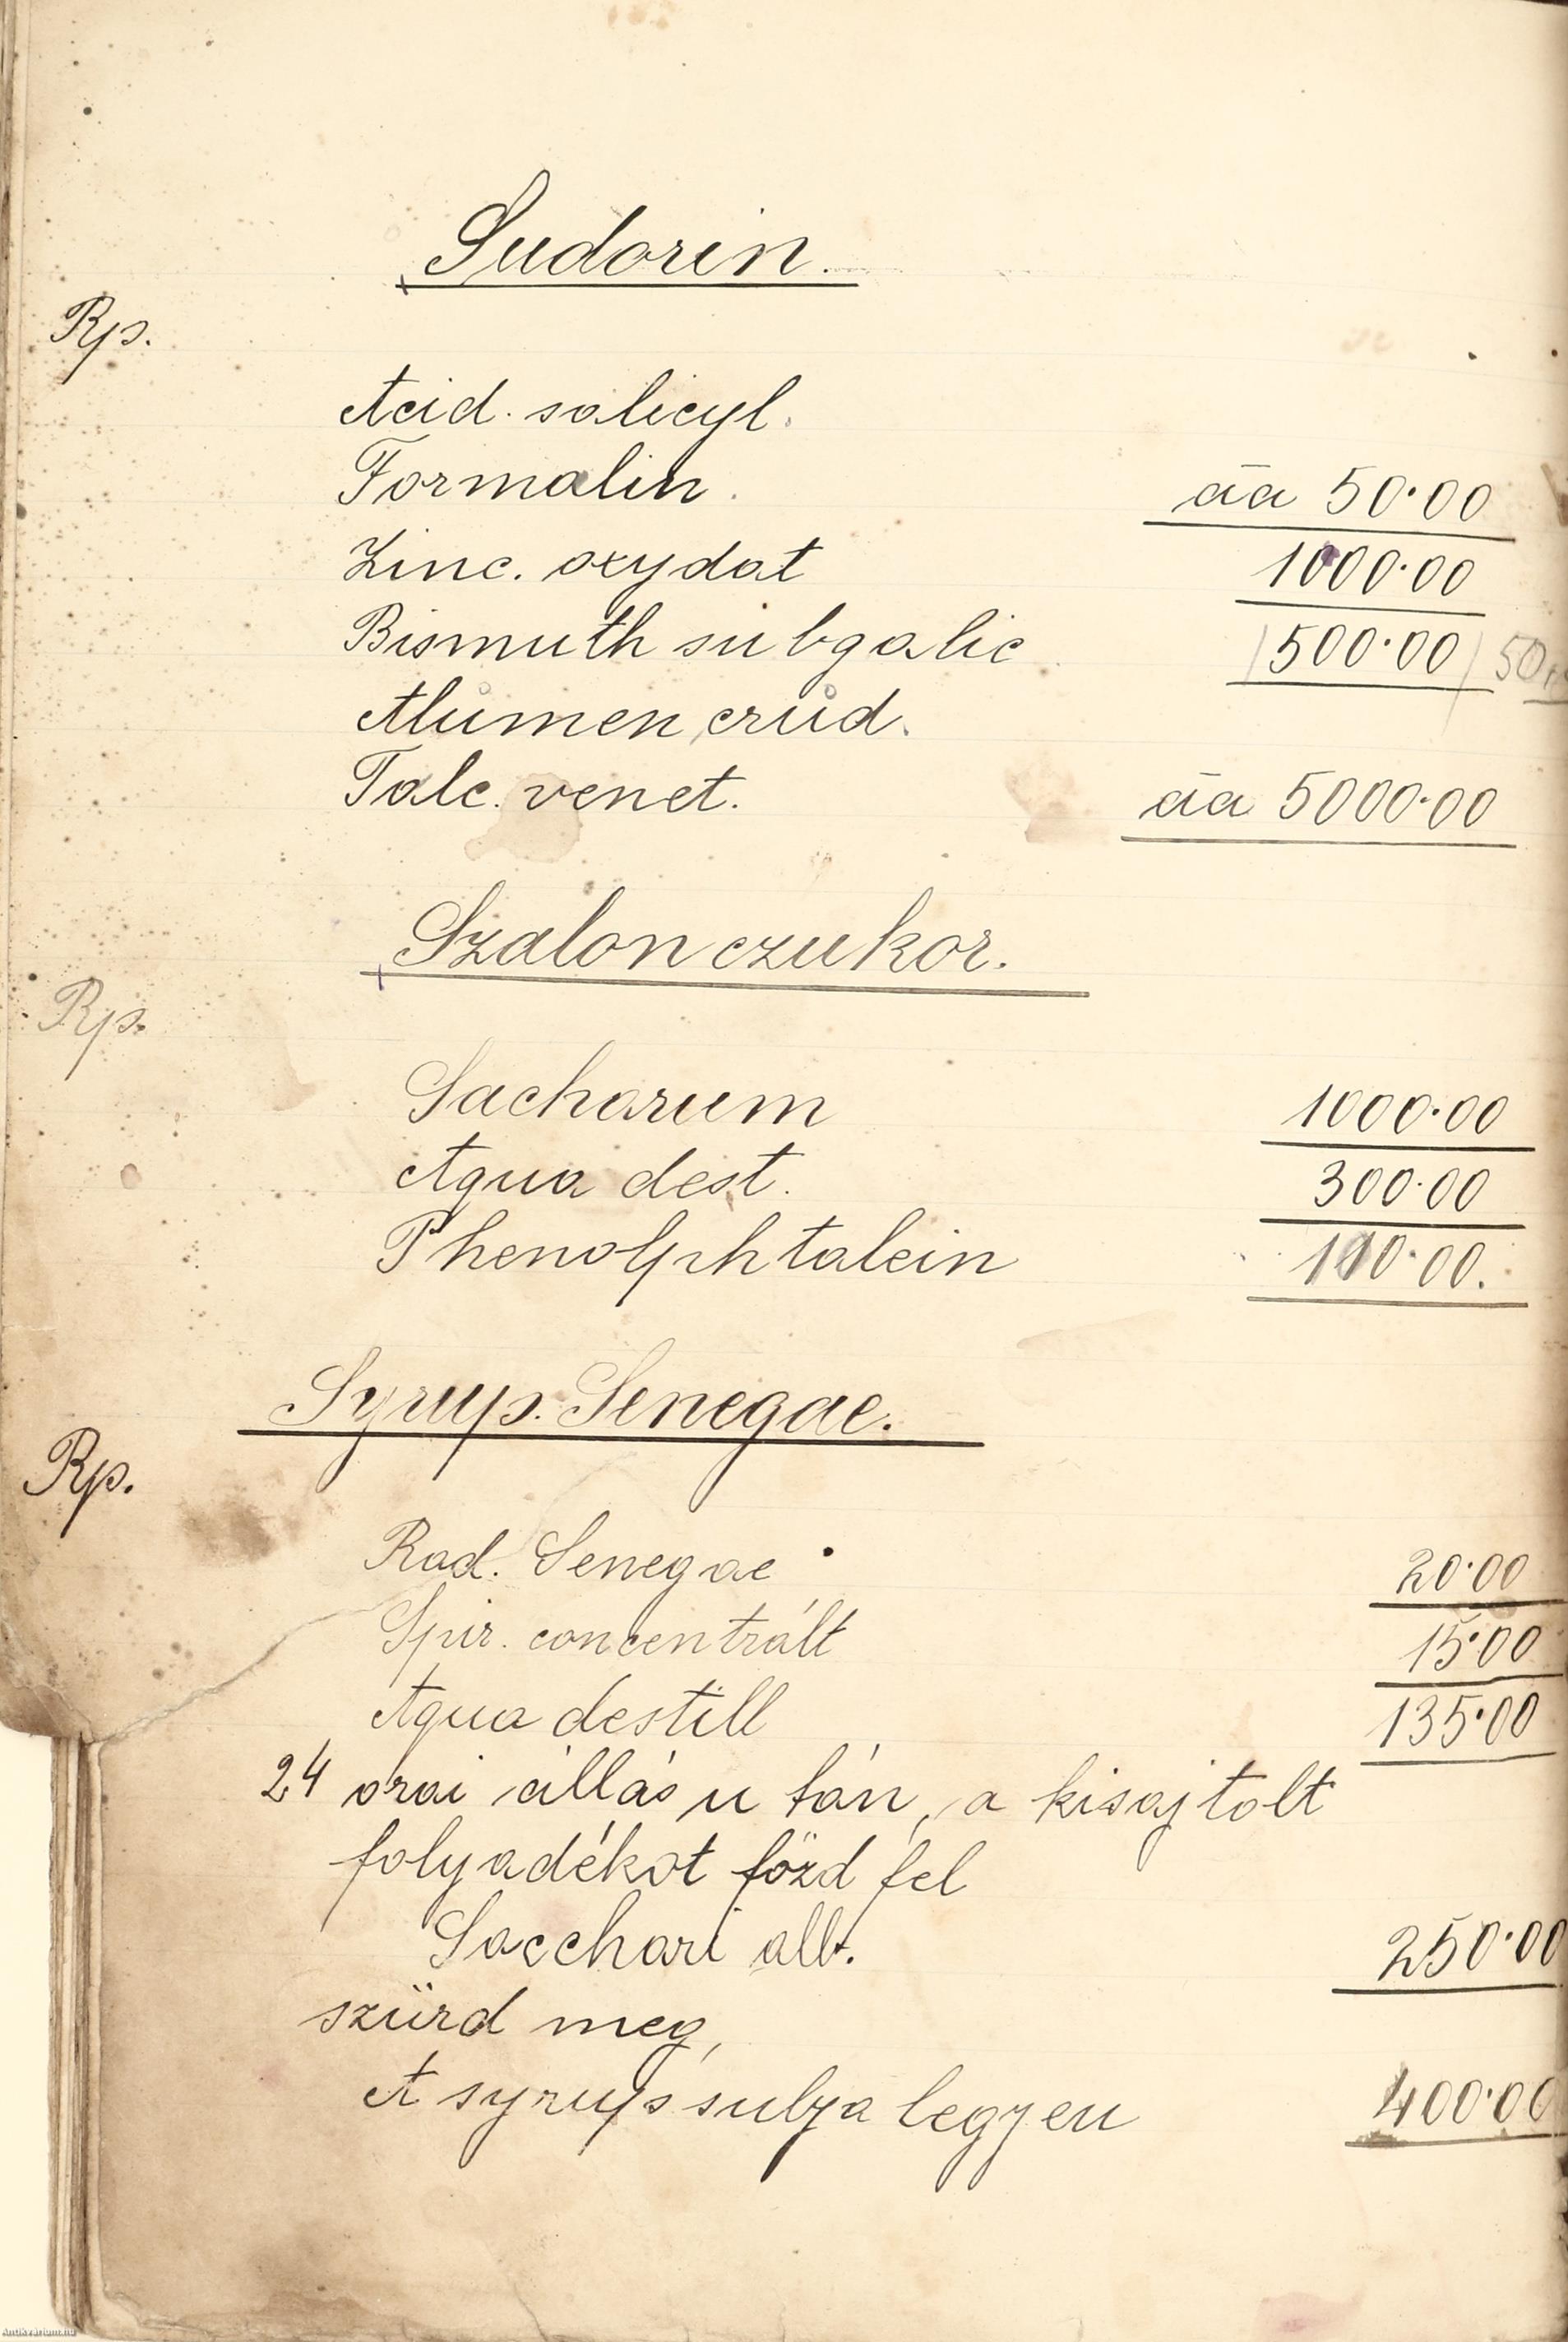 Sudorin.
Rp.
Acid. salicyl.
Formalin. āa 50·00
Zinc. oxydat 1000·00
Bismuth subgalic (500·00) 50,
Alumen crud.
Talc. venet. āa 5000·00
Szalonczukor.
Rp.
Sacharum 1000·00
Aqua dest. 300·00
Phenolphtalein 100·00.
Syrup. Senegae.
Rp.
Rad. Senegae 20·00
Spir. concentrált 15·00
Aqua destill 135·00
24 orai állás után, a kisajtolt
folyadékot főzd fel
Sacchari alb. 250·00
szürd meg,
A syrup sulya legyen 400·00
Antikvárium.hu